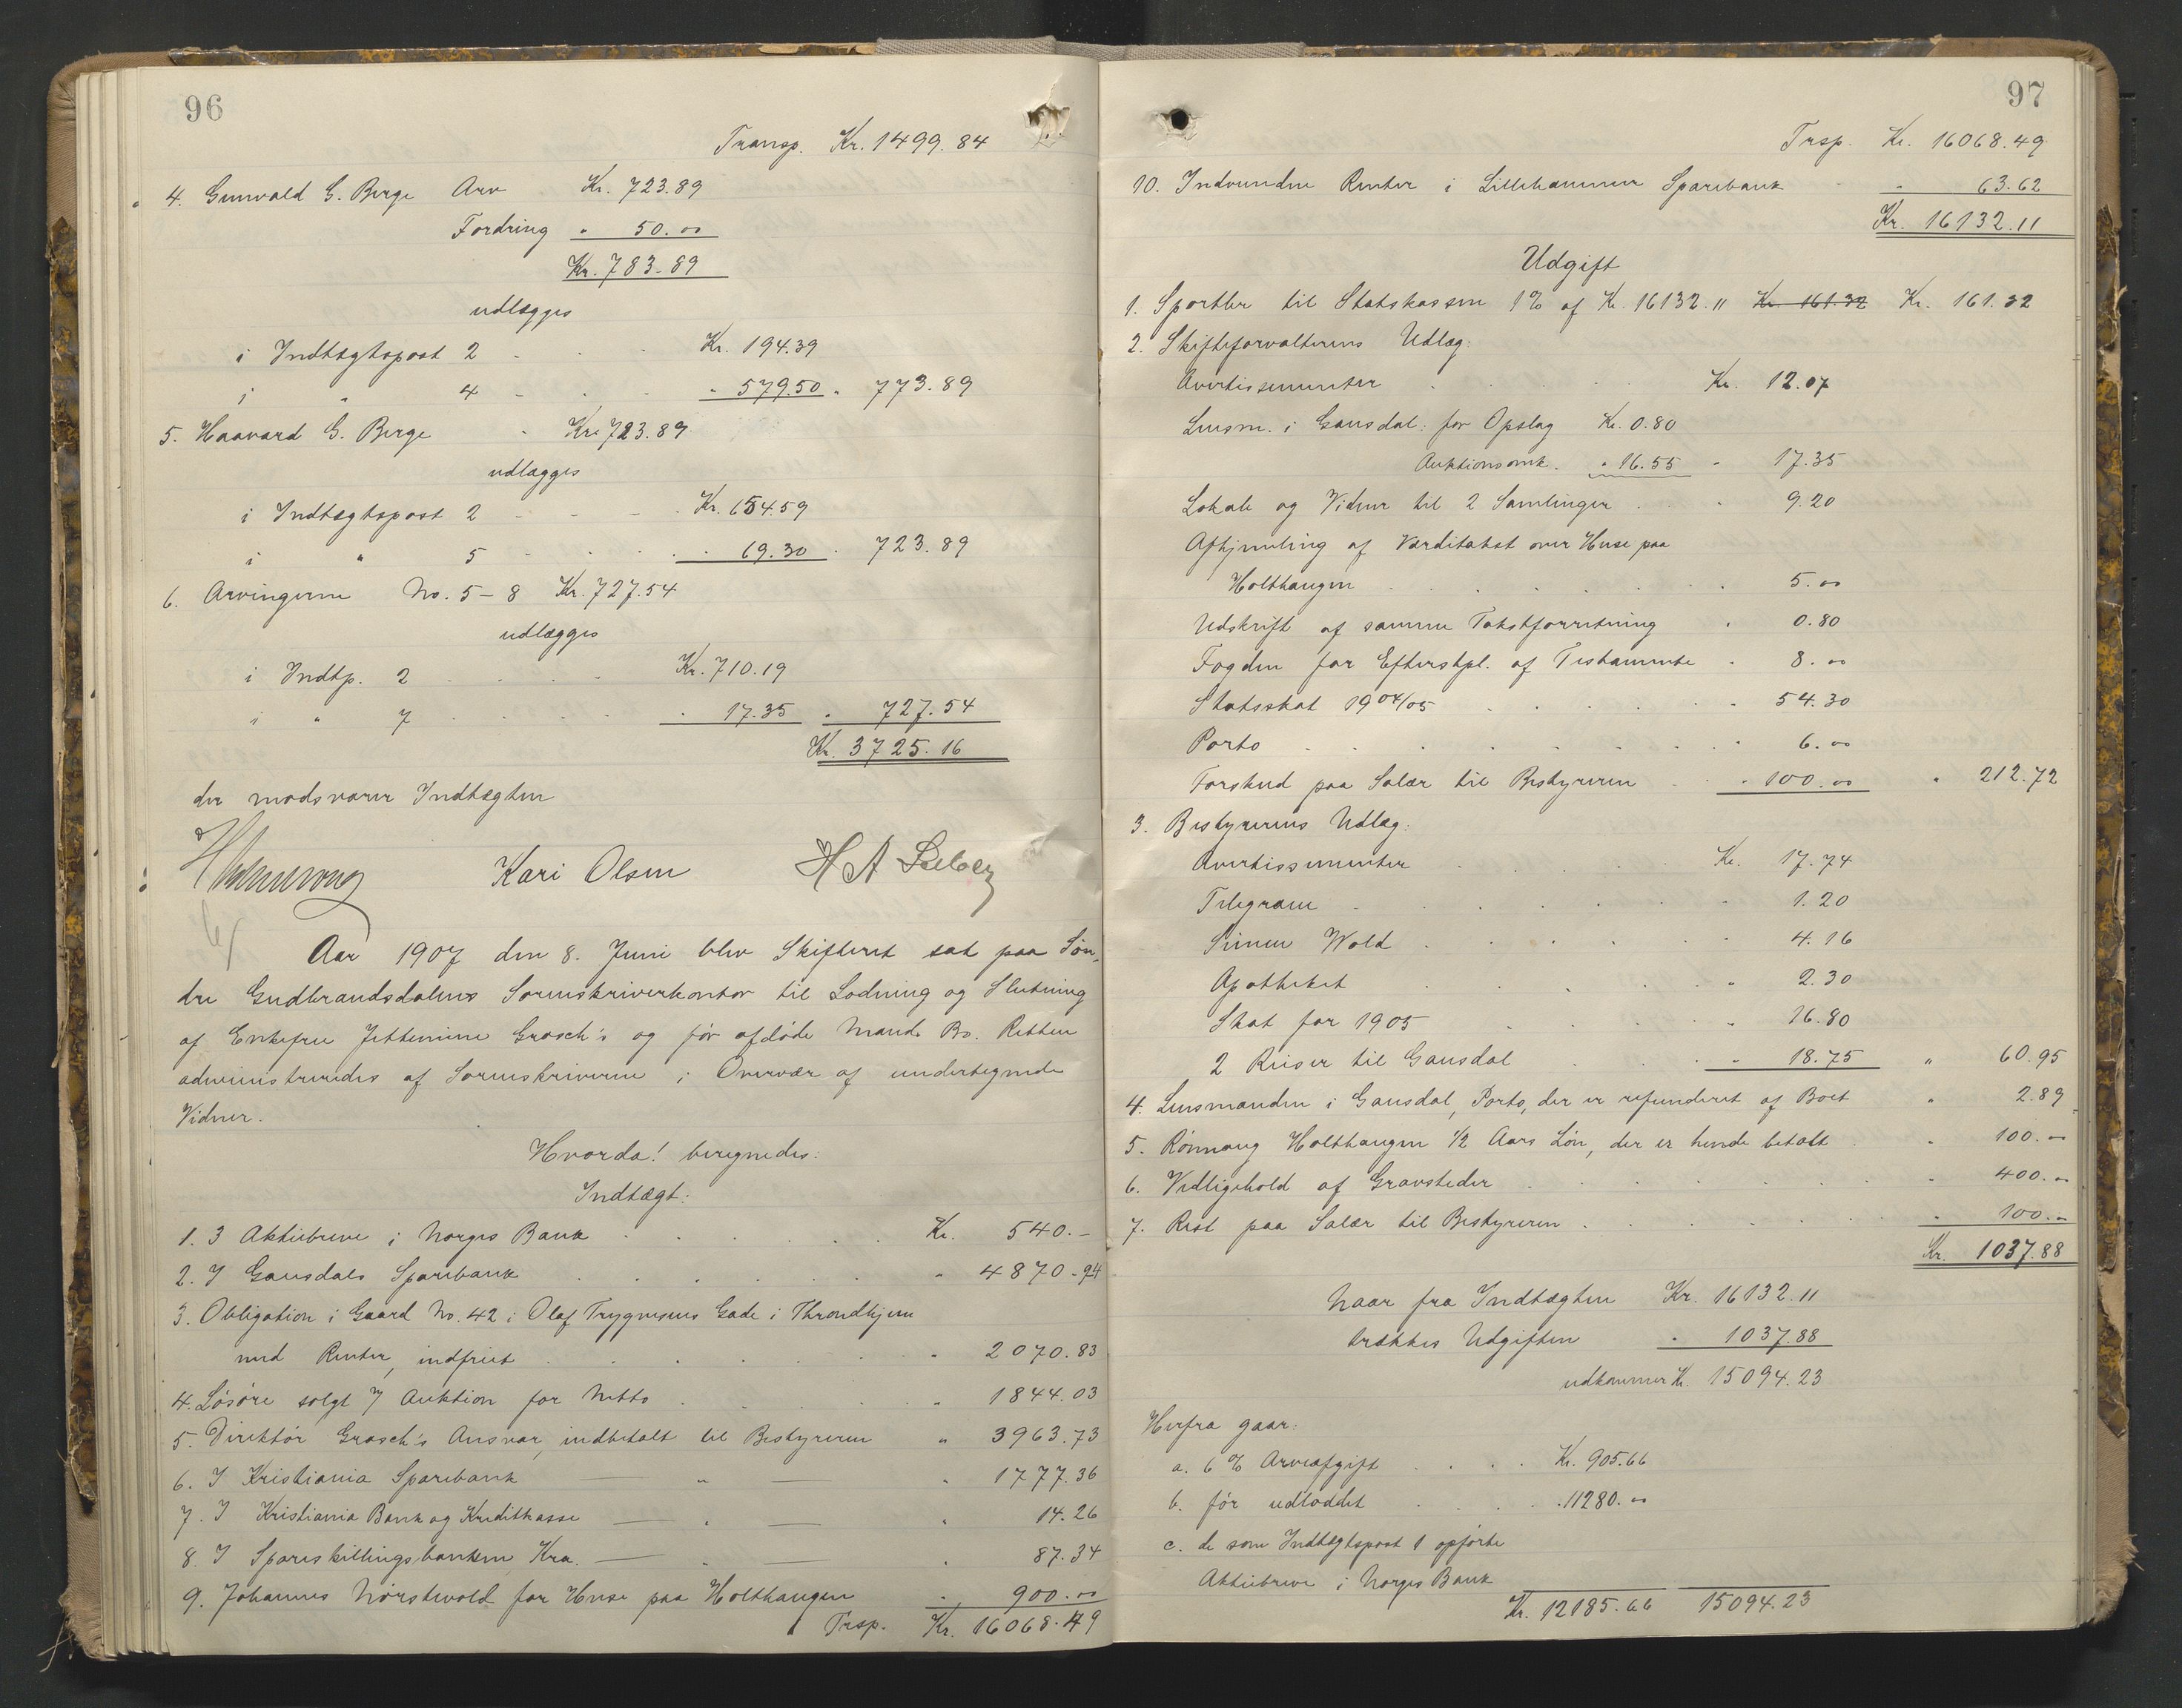 96
Transp. Kr. 1499.84
" 4. Gunvald G. Berge Arv Kr. 723.89
Fordring " 50.00
Kr. 783.89
udlægges
i Indtægtspost 2 Kr. 194.39
i " 4 " 579.50 " 773.89
5. Haavard G. Berge Kr. 723.89
udlægges
i Indtægtspost 2 Kr. 654.59
i " 5 " 69.30 " 723.89
6. Arvingerne No. 5-8 Kr. 727.54
udlægges
i Indtp. 2 Kr. 710.19
i " 7 " 17.35 " 727.54
Kr. 3725.16
der modsvarer Indtægten
Kari Olsen
Aar 1907 den 8. Juni blev Skifteret sat paa Søn-
dre Gudbrandsdalens Sorenskriverkontor til Lodning og Slutning
af Enkefru Jettemine Grosch's og før afdøde Mands Bo. Retten
administreredes af Sorenskriveren i Overvær af undertegnede
Vidner.
Hvorda! beregnedes:
Indtægt:
1. 3 Aktiebreve i Norges Bank Kr. 540.-
2. I Gausdals Sparebank " 4870.94
3. Obligation i Gaard No. 42 i Olaf Trygvesens Gade i Throndhjem
med Renter, indfriet " 2070.83
4. Løsøre solgt v/ Auktion for Netto " 1844.03
5. Direktør Grosch's Ansvar, indbetalt til Bestyreren " 3963.73
6. I Kristiania Sparebank — " — " 1777.36
7. I Kristiania Bank og Kreditkasse — " — " 14.26
8. I Spareskillingsbanken, Kra. — " — " 87.34
9. Johannes Nørstevold for Huse paa Holthaugen " 900.00
Trsp. Kr. 16068.49
97
Trsp. Kr. 16068.49
10. Indvundne Renter i Lillehammer Sparebank " 63.62
Kr. 16132.11
Udgift
1. Sportler til Statskassen 1% af Kr. 16132.11 Kr. 161.32 Kr. 161.32
2. Skifteforvalterens Udlæg:
Avertissementer Kr. 12.07
Lensm. i Gausdal: for Opslag Kr. 0.80
Auktionsomk. " 16.55 " 17.35
Lokale og Vidner til 2 Samlinger " 9.20
Afhjemling af Værditakst over Huse paa
Holthaugen " 5.00
Udskrift af samme Takstforretning " 0.80
Fogden for Efterstpl. af Testamente " 8.00
Statsskat 1904/05 " 54.30
Porto " 6.00
Forskud paa Salær til Bestyreren " 100.00 " 212.72
3. Bestyrerens Udlæg:
Avertissementer Kr. 17.74
Telegram 1.20
Simen Wold " 4.16
Apotheket " 2.30
Skat for 1905 " 16.80
2 Reiser til Gausdal " 18.75 " 60.95
4. Lensmanden i Gausdal, Porto, der er refunderet af Boet " 2.89
5. Rønnaug Holthaugen 1/2 Aars Løn, der er hende betalt " 100.00
6. Vedligehold af Gravsteder " 400.00
7. Rest paa Salær til Bestyreren " 100.00
Kr. 1037.88
Naar fra Indtægten Kr. 16132.11
trækkes Udgiften " 1037.88
udkommer Kr. 15094.23
Herfra gaar:
a. 6% Arveafgift Kr. 905.66
b. før udloddet " 11280.00
c. de som Indtægtspost 1 opførte
Aktiebreve i Norges Bank
Kr. 12185.66 15094.23